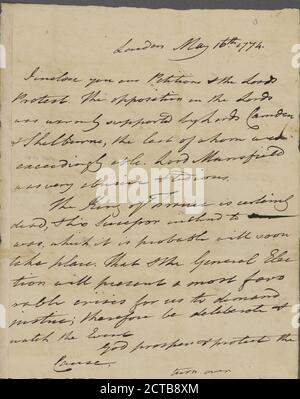 London May 16th. 1774.
I inclose you our Petition & the Lords
Protest. The opposition in the Lords
was warmly supported by Lords Camden
& Shelburne, the last of whom was
exceedingly able. Lord Mansfield
was very
The King of France is certainly
dead, & his Successor inclined to
war, which it is probable will soon
take place. That & the General Elec
tion will present a most favo
rable crisis for us to demand
justice; therefore be deliberate &
watch the Event.
God prosper & protest the
Cause.
turn over
alamy
Image ID: 2CTB8XM
www.alamy.com